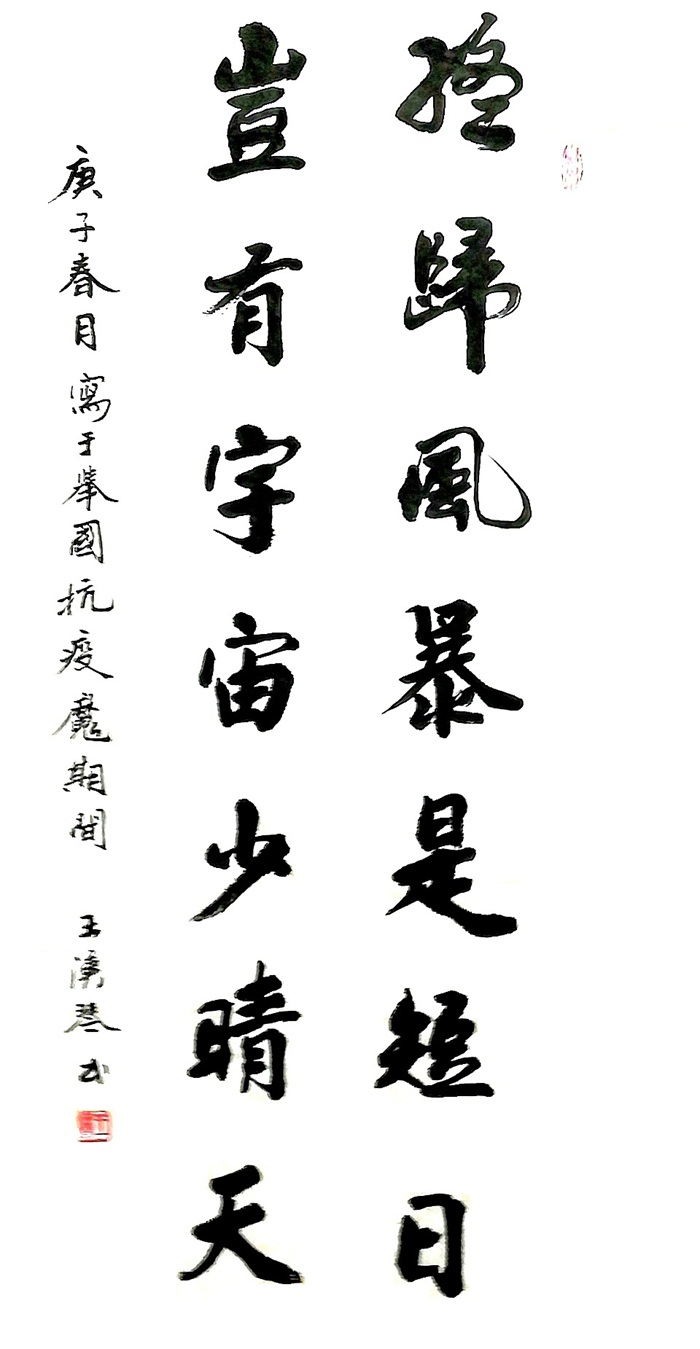 終歸風暴是短日
豈有宇宙少晴天
庚子春月寫于舉國抗疫魔期間 王漢琴书